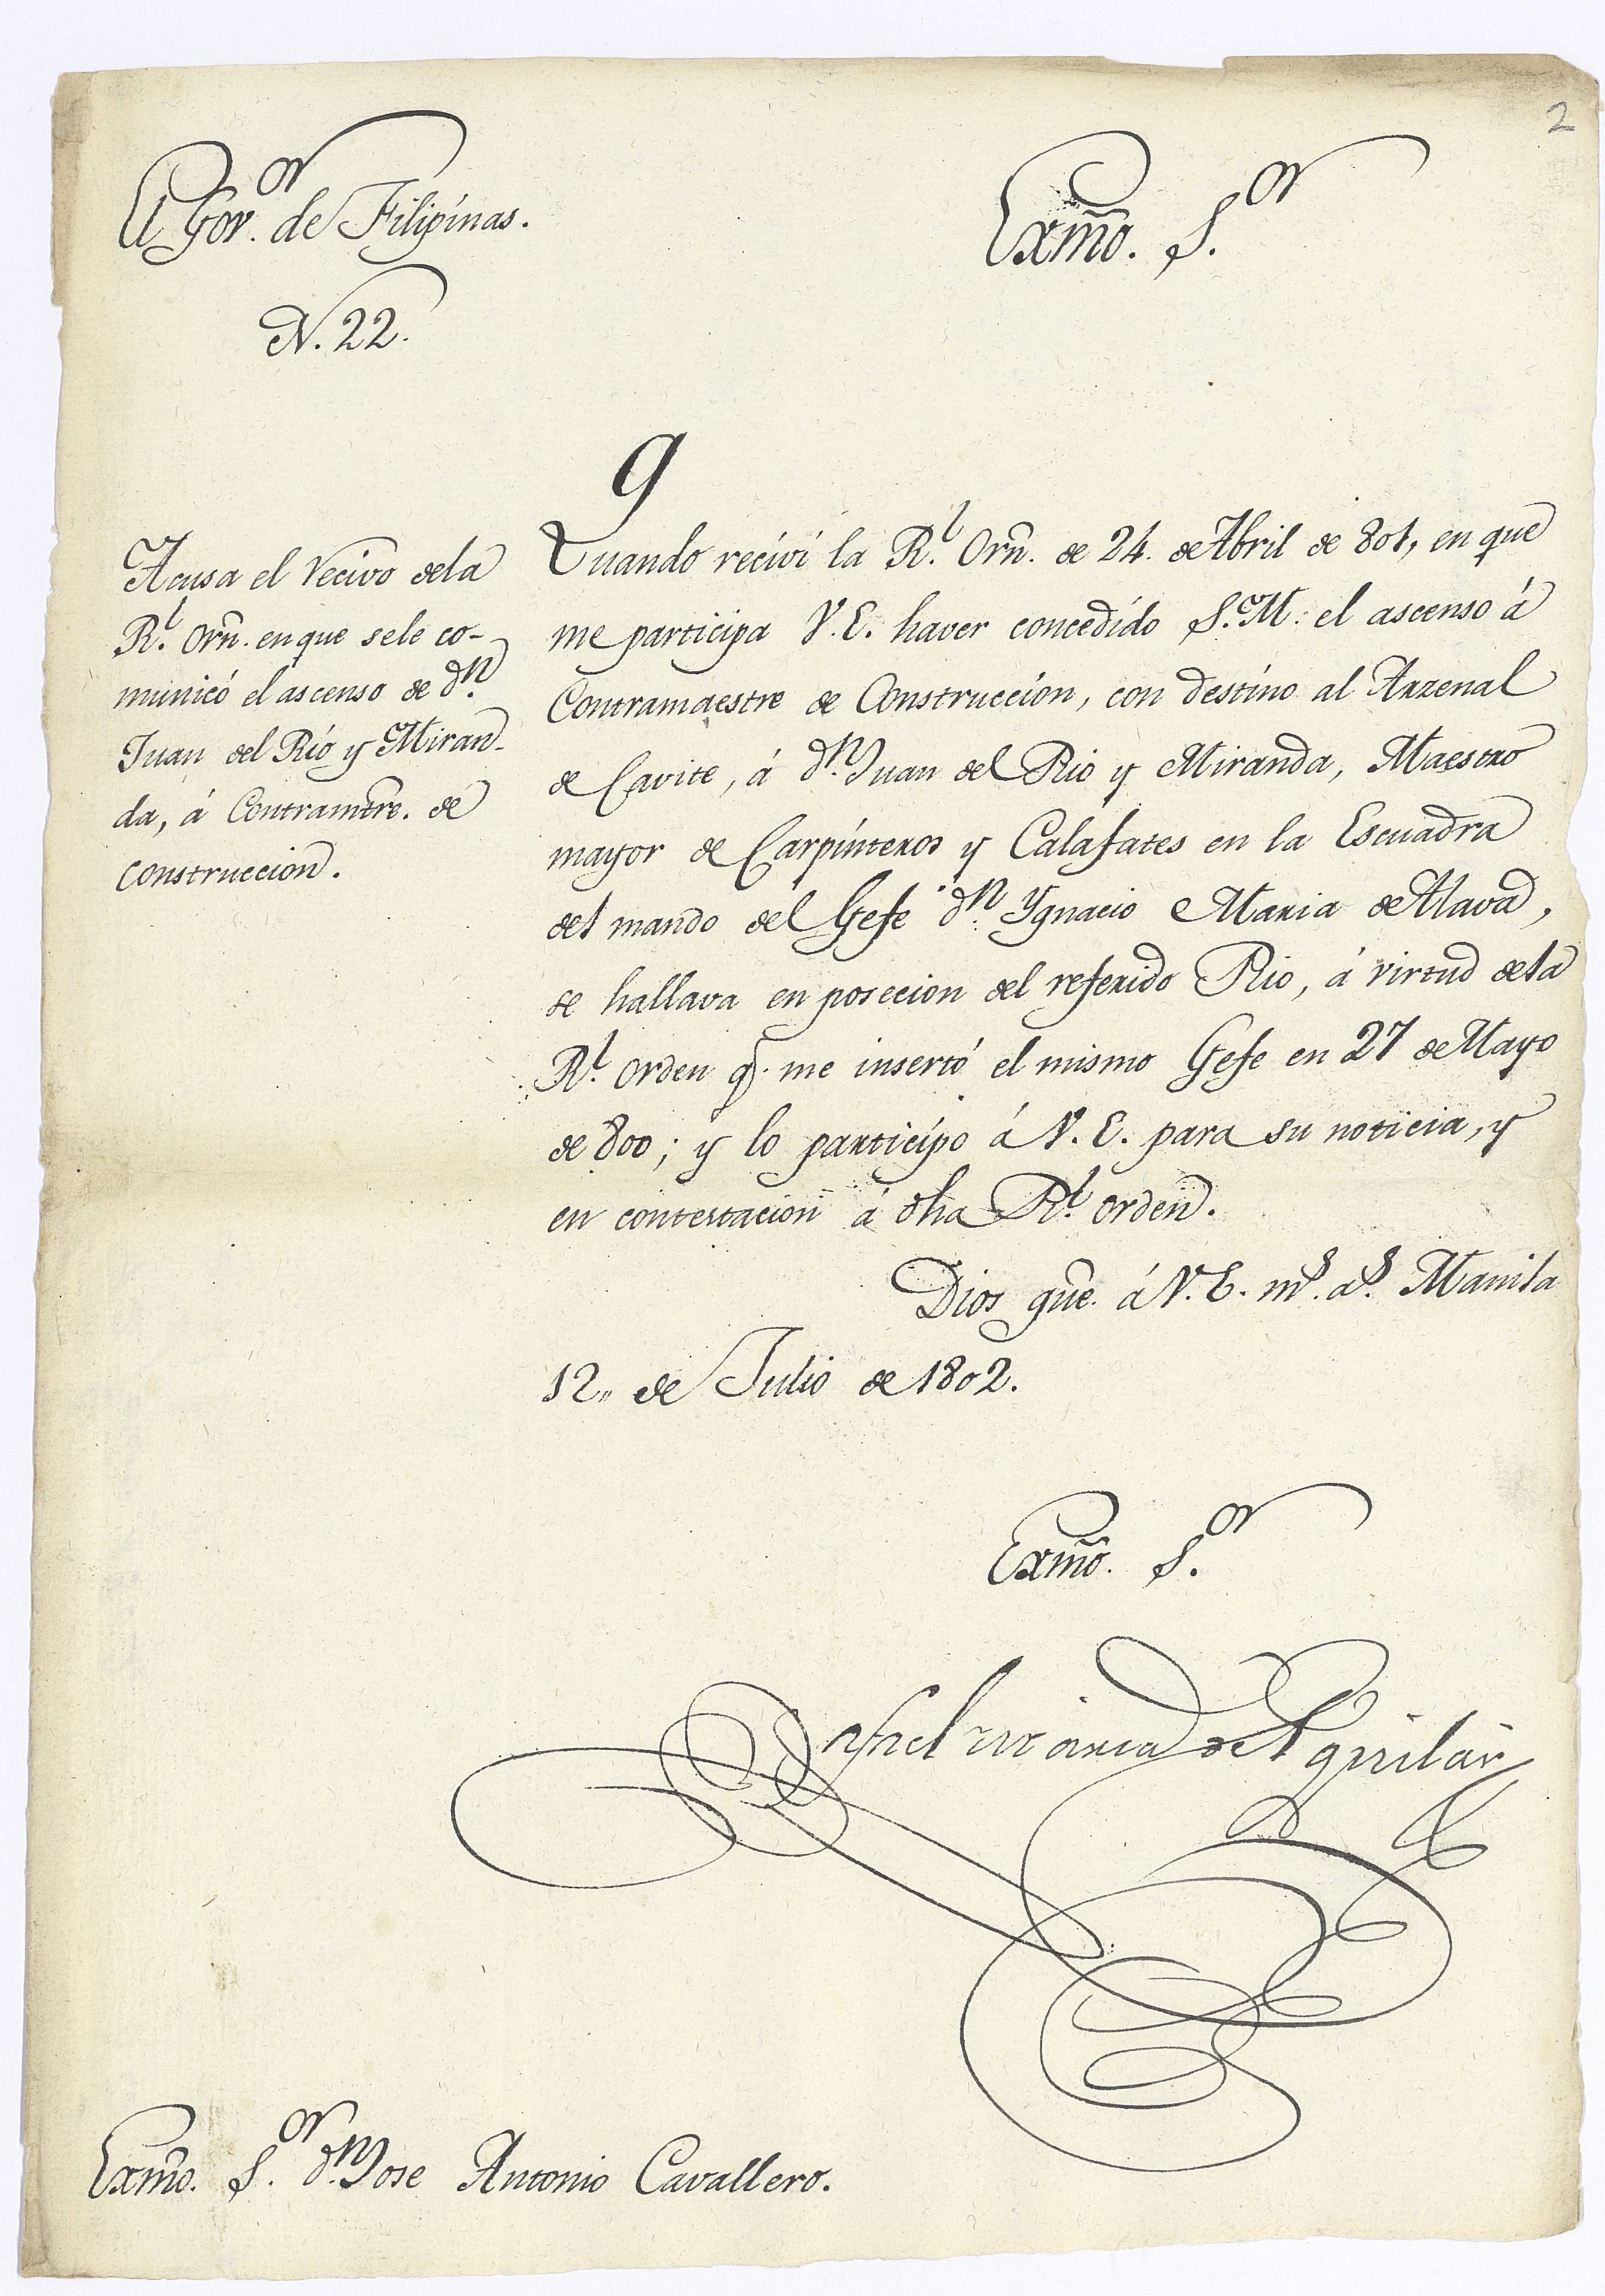 2
El Gov.or de Filipinas.
N. 22.
Exmo. S.or
Acusa el recivo dela
R.l Orn. en que sele co-
municó el ascenso de dn.
Juan del Rio y Miran-
da, á Contramtre. de
construccion.
9
Quando recivi la R.l Orn. de 24. de Abril de 801, en que
me participa V.E. haver concedido S.M. el ascenso á
Contramaestre de Construccion, con destino al Arzenal
de Cavite, á dn. Juan del Rio y Miranda, Maestro
mayor de Carpinteros y Calafates en la Escuadra
del mando del Gefe dn. Ygnacio Maria de Alava,
se hallava en posecion del referido Rio, á virtud dela
R.l orden q.e me insertó el mismo Gefe en 27 de Mayo
de 800; y lo participo á V.E. para su noticia, y
en contestacion á dha R.l orden.
Dios gue. á V.E. ms. as. Manila
12,, de Julio de 1802.
Exmo. S.or
Rafael Maria de Aguilar
Exmo. S.or dn. Jose Antonio Cavallero.